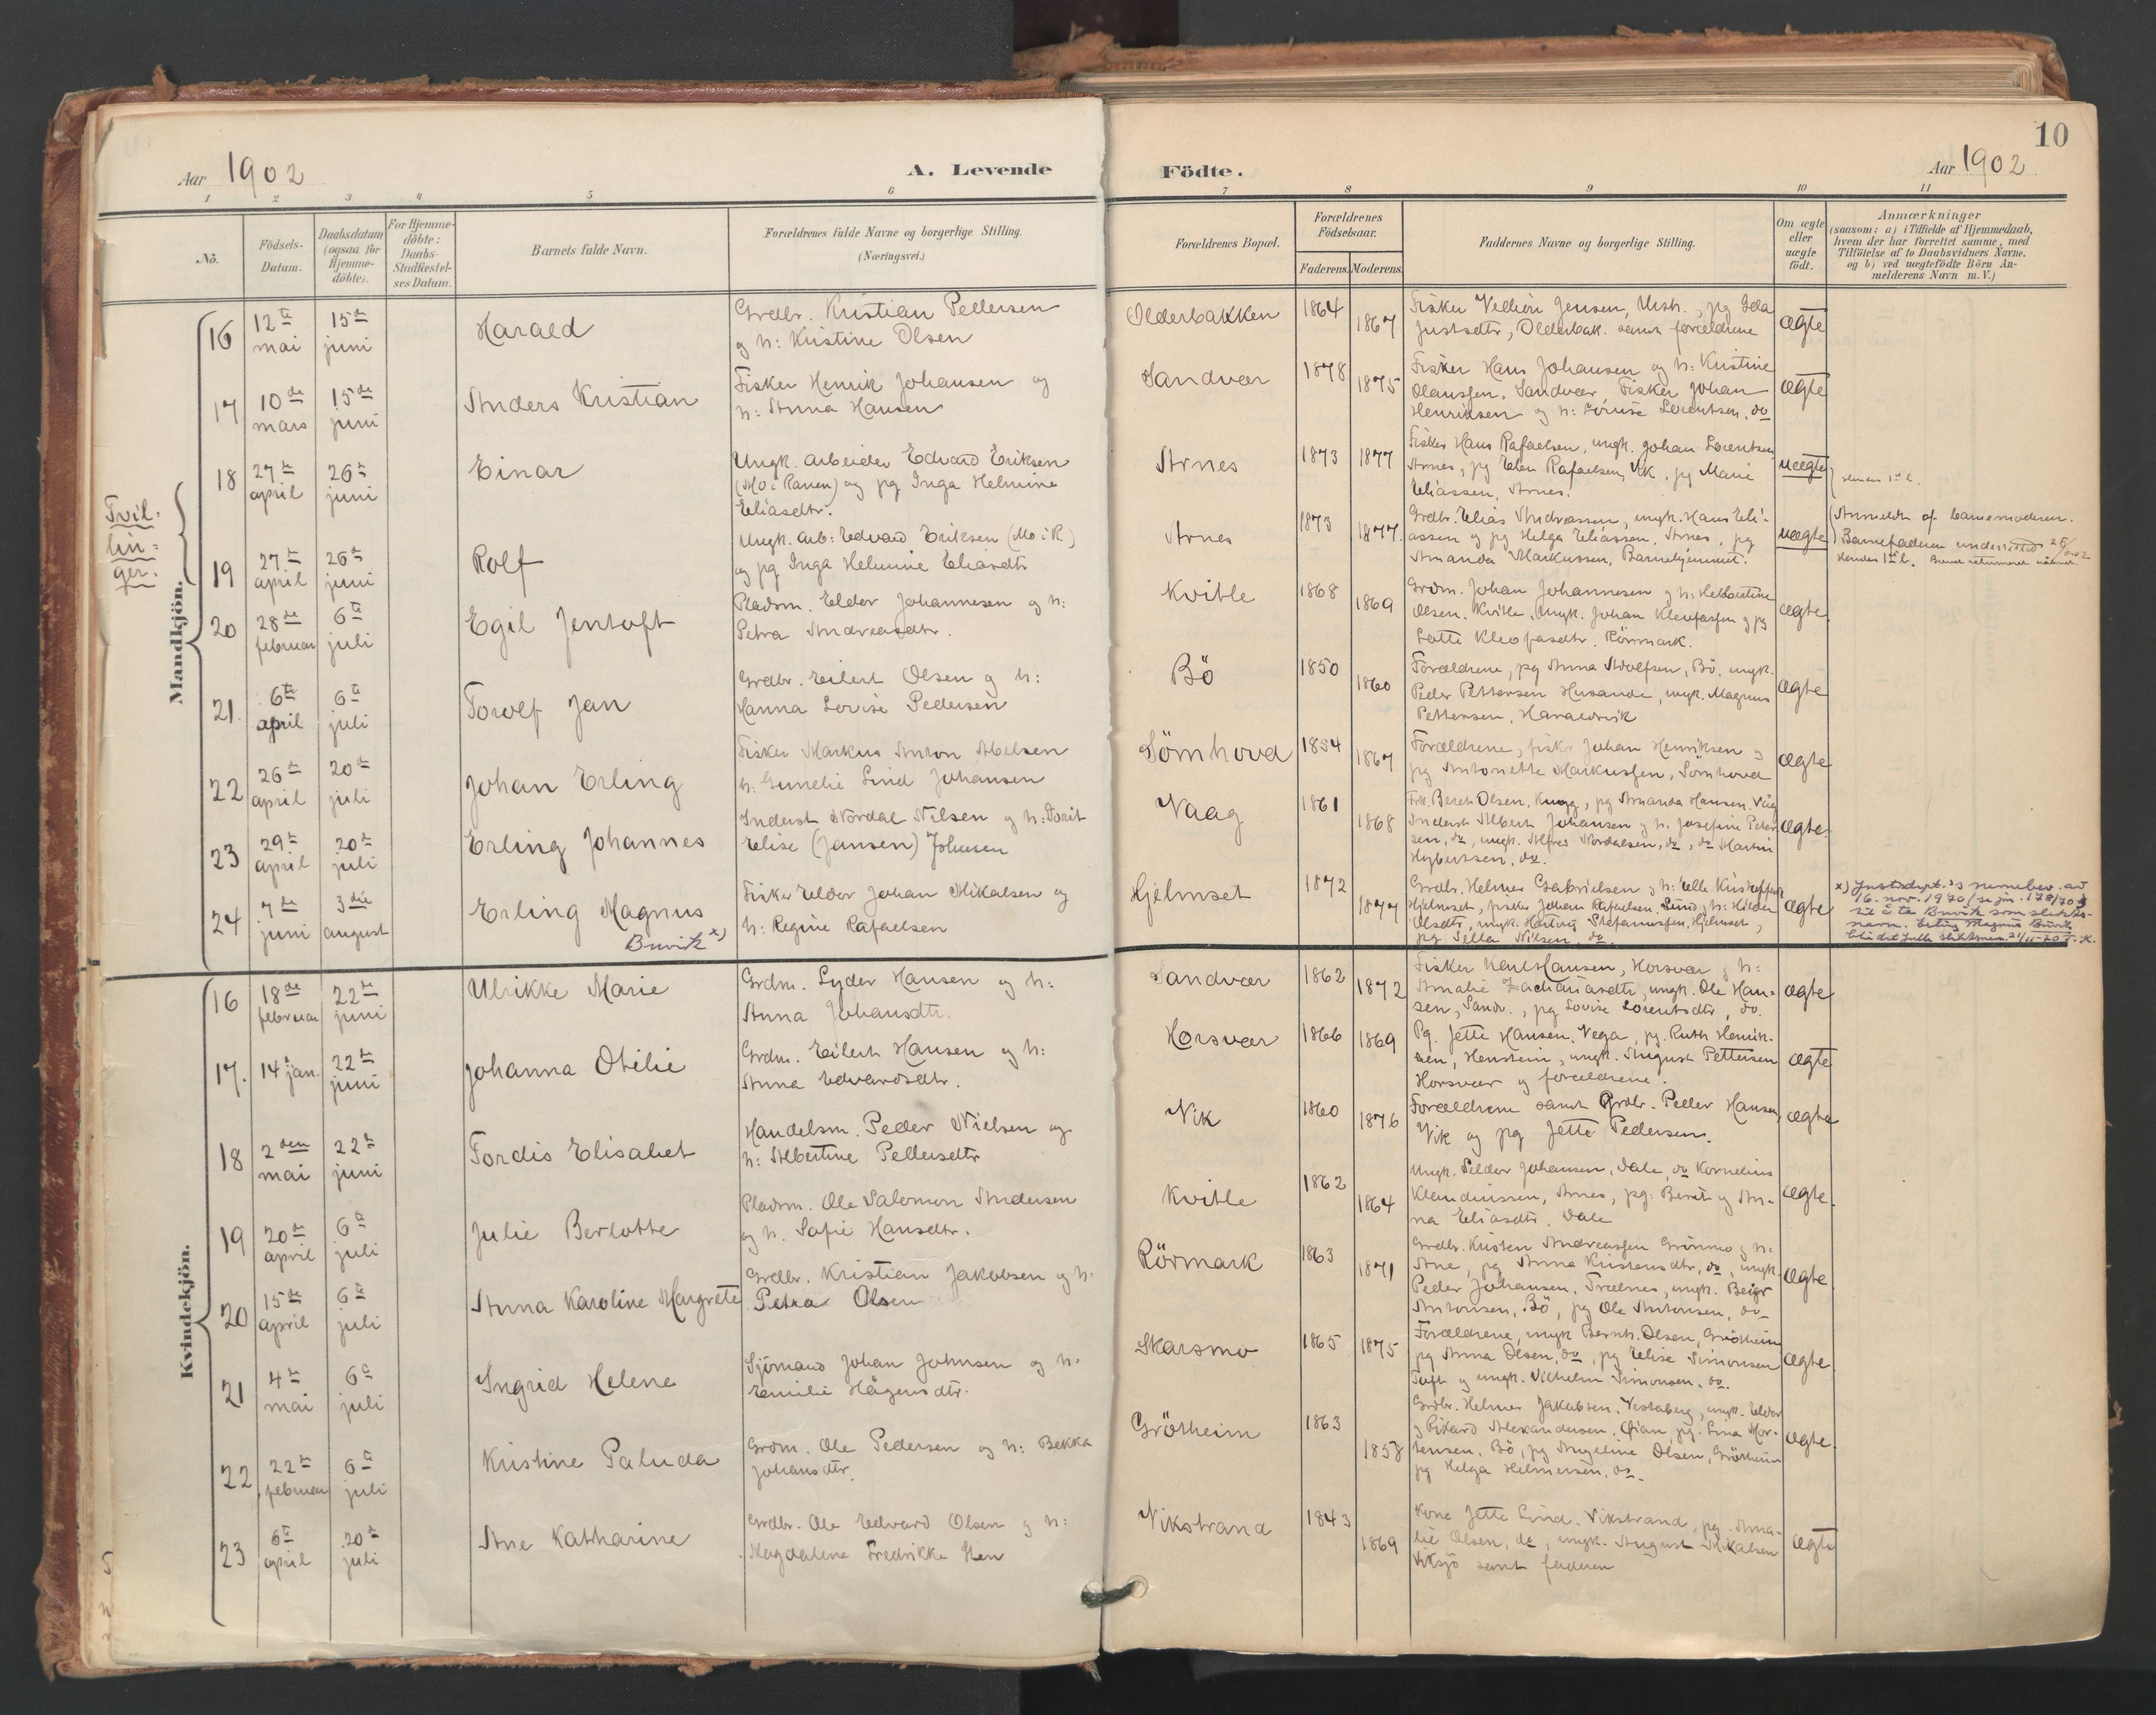 10
Aar 1902
A. Levende
Födte.
Aar 1902
1 2 3 4 5 6 7 8 9 10 11
No.
Födsels-
Datum.
Daabsdatum
(ogsaa for
Hjemme-
döbte).
For Hjemme-
döbte:
Daabs-
Stadfæstel-
ses Datum.
Barnets fulde Navn.
Forældrenes fulde Navne og borgerlige Stilling.
(Næringsvei.)
Forældrenes Bopæl.
Forældrenes
Födselsaar.
Faderens. Moderens.
Faddernes Navne og borgerlige Stilling.
Om ægte
eller
uægte
födt.
Anmærkninger
(saasom: a) i Tilfælde af Hjemmedaab,
hvem der har forrettet samme, med
Tilföielse af to Daabsvidners Navne.
og b) ved uægtefödte Börn An-
melderens Navn m. V.)
Mandkjön.
Tvil-
lin-
ger.
16 12te mai 15de juni
Harald
Grdbr. Kristian Pettersen
og h: Kristine Olsen
Olderbakken 1864 1867
Fisker Jensen, pg Ida
Justsdtr, Olderbak. samt forældrene
ægte
17 10de mars 15de juni
Anders Kristian
Fisker Henrik Johansen og
h: Anna Hansen
Sandvær 1878 1875
Fisker Hans Johansen og h: Kristine
Olaussen, Sandvær, Fisker Johan
Henriksen og h: Lovise Lorentsen, do
ægte
18 27de april 26de juni
Einar
Ungk. arbeider Edvard Eriksen
(Mo i Ranen) og pg Inga Helmine
Eliasdtr.
Arnes 1873 1877
Fisker Hans Rafaelsen, ungk. Johan Lorentsen
Arnes, pg Elen Rafaelsen, Vik, pg Marie
Eliassen, Arnes.
uægte
19 27de april 26de juni
Rolf
Ungk. arb: Edvard Eriksen (Mo i R.)
og pg Inga Helmine Eliasdtr
Arnes 1873 1877.
Grdbr. Elias Andreassen, ungk. Hans Eli-
assen og pg Helga Eliassen, Arnes, pg
Amanda Markussen, Barnehjemmet.
uægte
Anmeldt af barnemoderen.
Barnefaderen underrettet
20 28de februar 6te juli
Egil Jentoft
Pladsm. Eldor Johannesen og h:
Petra Andreasdtr.
Kvitle 1868 1869
Grdm. Johan Johannesen og h:
Olsen, Kvitle, Ungk. Johan Kleofassen og pg
Lotte Kleofasdtr, Rörmark.
ægte
21. 6te april 6te juli
Torolf Jan
Grdbr. Eilert Olsen og h:
Hanna Lovise Pedersen
Bö 1850 1860
Forældrene, pg Anna Adolfsen, Bö, ungk.
Peder Pettersen Husande, ungk. Magnus
Pettersen, Haraldsvik
ægte
22 26de april 20de juli
Johan Erling
Fisker Markus Anton Abelsen
h: Lind Johansen
Sömhovd 1854 1867
Forældrene, fisker Johan Henriksen og
pg Antonette Markussen, Sömhovd
ægte
23 29de april 20de juli
Erling Johannes
Inderst Nordal Nilsen og h: Dorit
Elise (Jansen) Johnsen
Vaag 1861 1868
Olsen, pg Amanda Hansen, Vaag
Inderst Albert Johansen og h. Josefine Peter
sen, do, ungk. Alfred Nordalsen, do, do Martin
Hybertsen, do.
ægte.
24 7de juni 3die august
Erling Magnus
Buvik x)
Fisker Eldor Johan Mikalsen og
h: Regine Rafaelsen
Hjelmset 1872 1877
Grdbr. Helmer Gabrielsen og h:
Hjelmset, fisker Johan Rafaelsen, Sund, h: Hilda
Olsdtr, ungk. Hartvig Stefanussen, Hjelmset,
pg Nilsen, do
ægte
x) Justisdept.'s navnebev. av
16. nov. 1970
til å ta Buvik som slekts-
navn. Erling Magnus Buvik
blir det fulle
Kvindekjön.
16 18de februar 22de juni
Ulrikke Marie
Grdm. Lyder Hansen og h:
Anna Johansdtr.
Sandvær 1862 1872
Fisker Karl Hansen, Horsvær og h:
Amalie Zachariasdtr, ungk. Ole Han-
sen, Sandv., pg Lovise Lorentsdtr, do.
ægte
17. 14 jan. 22de juni
Johanna Otilie
Grdm. Eilert Hansen og h:
Anna Edvardsdtr.
Horsvær 1866 1869
Pg. Jette Hansen, Vega, pg. Ruth Henrik-
sen, Henstein, ungk. August Pettersen
Horsvær og forældrene.
ægte
18 2den mai 22de juni
Tordis Elisabet
Handelsm. Peder Nielsen og
h: Albertine Pettersdtr
Vik 1860 1876
Forældrene samt Grdbr. Petter Hansen,
Vik og pg Jette Pedersen.
ægte
19 20de april 6te juli
Julie Berlotte
Pladsm. Ole Salomon Andersen
og h. Sofie Hansdtr.
Kvitle 1862 1864
Ungk. Peder Johansen, Dale, do Kornelius
Klaudiussen, Arnes, pg: Berit og An-
na Eliasdtr, Dale
ægte.
20 15de april 6te juli
Anna Karoline Margrete
Grdbr. Kristian Jakobsen og h.
Petra Olsen
Rörmark 1863 1871
Grdbr. Kristen Andreassen Grönmo og h:
Ane, pg Anna Kristensdtr, do, ungk.
Peder Johansen, Trælnes, ungk. Beiger
Antonsen, Bö, pg Ole Antonsen, do
ægte.
21 4de mai 6te juli
Ingrid Helene
Sjömand Johan Johnsen og h.
Emilie Hågensdtr.
Skarsmo 1865 1875
Forældrene, ungk Bernh. Olsen, Grötheim
pg Anna Olsen, do, pg Elise Simonsen
Tuft og ungk. Vilhelm Simonsen, do.
ægte.
22 22de februar 6te juli
Kristine Paluda
Grdm. Ole Pedersen og h: Bekka
Johansdtr.
Grötheim 1863 1858
Grdbr. Helmer Jakobsen, Vestaberg, ungk. Eldor
og Rikard Alexandersen, pg. Lina Mor-
tensen, Bö, pg Angeline Olsen, Grötheim
pg Helga Helmersen, do.
ægte.
23 6te april 20de juli
Ane Katharine
Grdbr. Ole Edvard Olsen og h:
Magdalena Fredrikke Sten
Vikstrand 1843 1869
Kone Jette Lind, Vikstrand, pg. Ama-
lie Olsen, do, ungk. August Mikalsen
Viksjö samt faderen
ægte